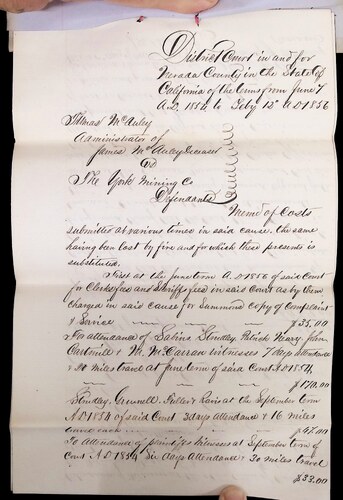 District Court in and for
Nevada County in the State of
California of the terms from June
A.D. 1854 to Feby 12th A.D 1856
Thomas McAuley
Administrator of
James McAuley Deceased
vs
The York Mining Co
Defendants
Memo of Costs
submitted at various times in said cause, the same
having been lost by fire and for which these presents is
substituted.
First at the June term A.D 1854 of said Court
for Clerks fees and Sheriffs fees in said Court as by them
charged in said cause for Summons copy of Complaint
& Service $35,00
For attendance of Sabine Stindley, Patrick Neary, John
Cartwill & M. McCarran witnesses 7 days attendance
& miles travel at June term of said Court A.D 1854,
$170.00
Stindley, Fuller & Kavis at the September term
A.D 1854 of said Court 3 days Attendance & 16 miles
travel each $47.00
To Attendance of plaintiffs witnesses at September term of
Court A.D 1854 Six days Attendance & 30 miles travel
$33.00